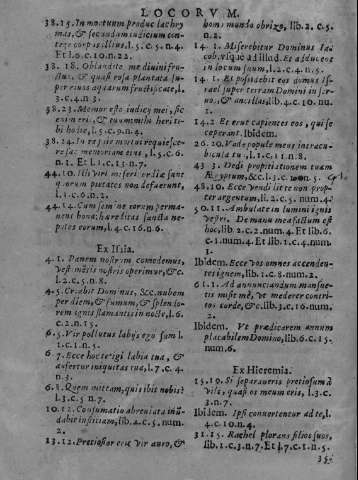 LOCORVM.
38. 15. In mortuum produc lachry
mas, & secundum iudicium con-
tege corpus illius. l. 5. c. 5. n. 4.
Et l. 6. c. 10. n. 22.
38. 18. Obaudite me diuini fru-
ctus, & quasi rosa plantata su-
per riuos aquarum fructificate, l.
3. c. 4. n. 3.
38. 23. Memor esto iudicij mei, sic
enim erit, & tuum mihi heri ti-
bi hodie, l. 5. c. 9. n. 4.
38. 24. In requie mortui requiesce-
re fac memoriam eius, l. 5. c. 6.
n. 1. Et l. 1. c. 13. n. 7.
44. 10. Illi viri miseri cordiæ sunt
quorum pietates non defuerunt,
l. 1. c. 6. n. 2.
44. 14. Cum semine eorum perma-
nent bona: hæreditas sancta ne-
potes eorum, l. 4. c. 16. n. 6.
Ex Isaia.
4. 1. Panem nostrum comedemus,
vestimetis nostris operimur, & c.
l. 2. c. 5. n. 8.
4. 5. Creabit Dominus, &c. nubem
per diem, & fumum, & splendo-
rem ignis flamantis in nocte, l. 6.
c. 2. n. 15.
6. 5. Vir pollutus labijs ego sum l.
1. c. 1. n. 5.
6. 7. Ecce hoc tetigi labia tua, &
auferetur iniquitas tua, l. 7. c. 4.
n. 3.
6. 8. Quem mittam, quis ibit nobis?
l. 3. c. 5. n. 7.
10. 12. Consumatio abreuiata inū-
dabit iustitiam, lib. 4. c. 5. num.
2.
13. 12. Pretiosior erit vir auro, &
homo mundo obrizo, lib. 2. c. 5.
n. 2.
14. 1. Miserebitur Dominus Ia-
cob, vsque ad illud. Et adducet eos
in locum suum, l. 2. c. 4. n. 5.
14. Et possidebit eos domus Is-
rael super terram Domini in ser-
uos, & ancillas, lib. 4. c. 10. nu.
1.
14. 2. Et erut capientes eos, qui se
ceperant. Ibidem.
26. 20. Vade popule meus intra cu-
bicula tu, l. 1. c. 11. n. 8.
43 3. Dedi propitiationem tuam
Ægyptum, &c. l. 3. c. n. 5.
48. 10. Ecce vendi li te non prop-
ter argentum, li. 2. c. 5. num. 4.
50. 11. Ambulate in lumini ignis
vestri. De manu mea factum est
hoc, lib. 2. c. 2. num. 4. Et lib. 6.
c. 1. num. 4. Et lib. 1. c. 4. num.
1.
Ibidem. Ecce vos omnes accenden-
tes ignem, lib. 1. c. 8. num. 2.
61. 1. Ad annunciandum mansue-
tis misit mē, vt mederer contri-
tos corde, & c, lib. 3. c. 16. num.
2.
Ibidem. Vt prædicarem annum
placabilem Domino, lib. 6. c. 15.
num. 6.
Ex Hieremia.
15. 19. Si separaueris pretiosum à
vili, quasi os meum eris, l. 3. c.
3. n. 7.
Ibidem. Ipsi conuertentur ad te, l.
4. c. 10. n. 4.
31. 15. Rachel plorans filios suos,
lib. 1. c. 3. n. 7. Et l. 7. c. 1. n. 5.